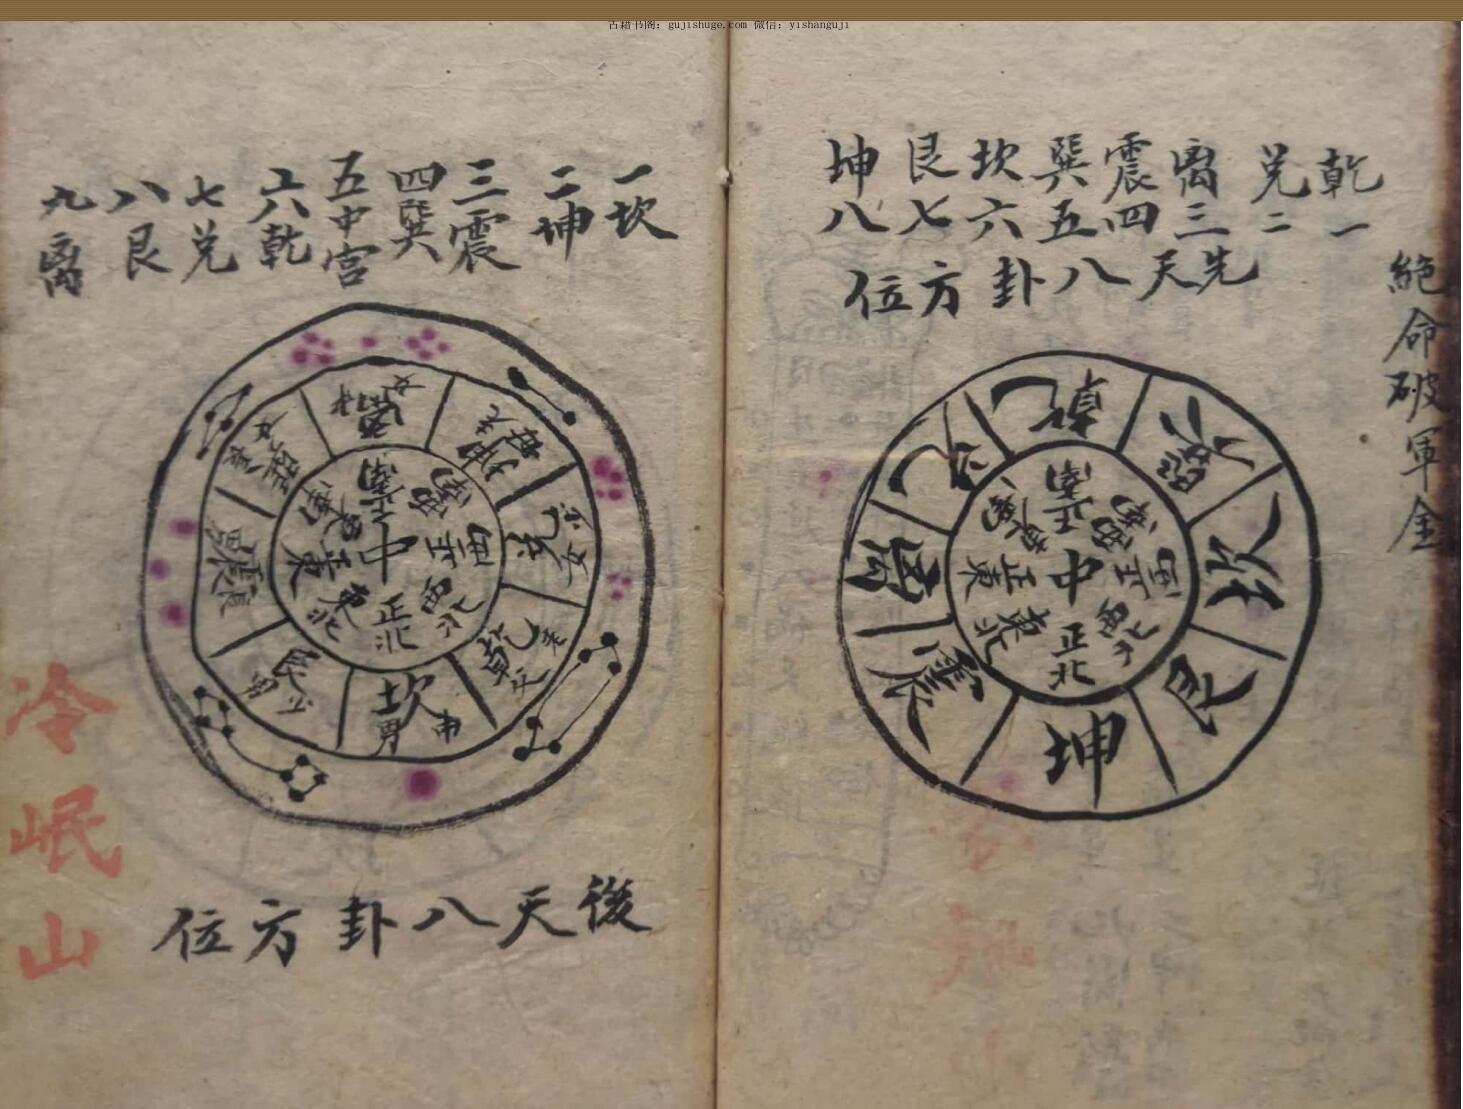 古籍书阁：gujishuge.com 微信：yishanguji
絕命破軍金
乾一
兑二
离三
震四
巽五
坎六
艮七
坤八
先天八卦方位
乾
坎
艮
坤
震
离
兑
中
正南
西南
正西
西北
正北
東北
正東
一坎
二坤
三震
四巽
五中宮
六乾
七兑
八艮
九离
离
坤
兑
少女
乾
坎
中男
艮
震
巽
中
正南
西南
正西
西北
正北
東北
正東
後天八卦方位
冷岷山